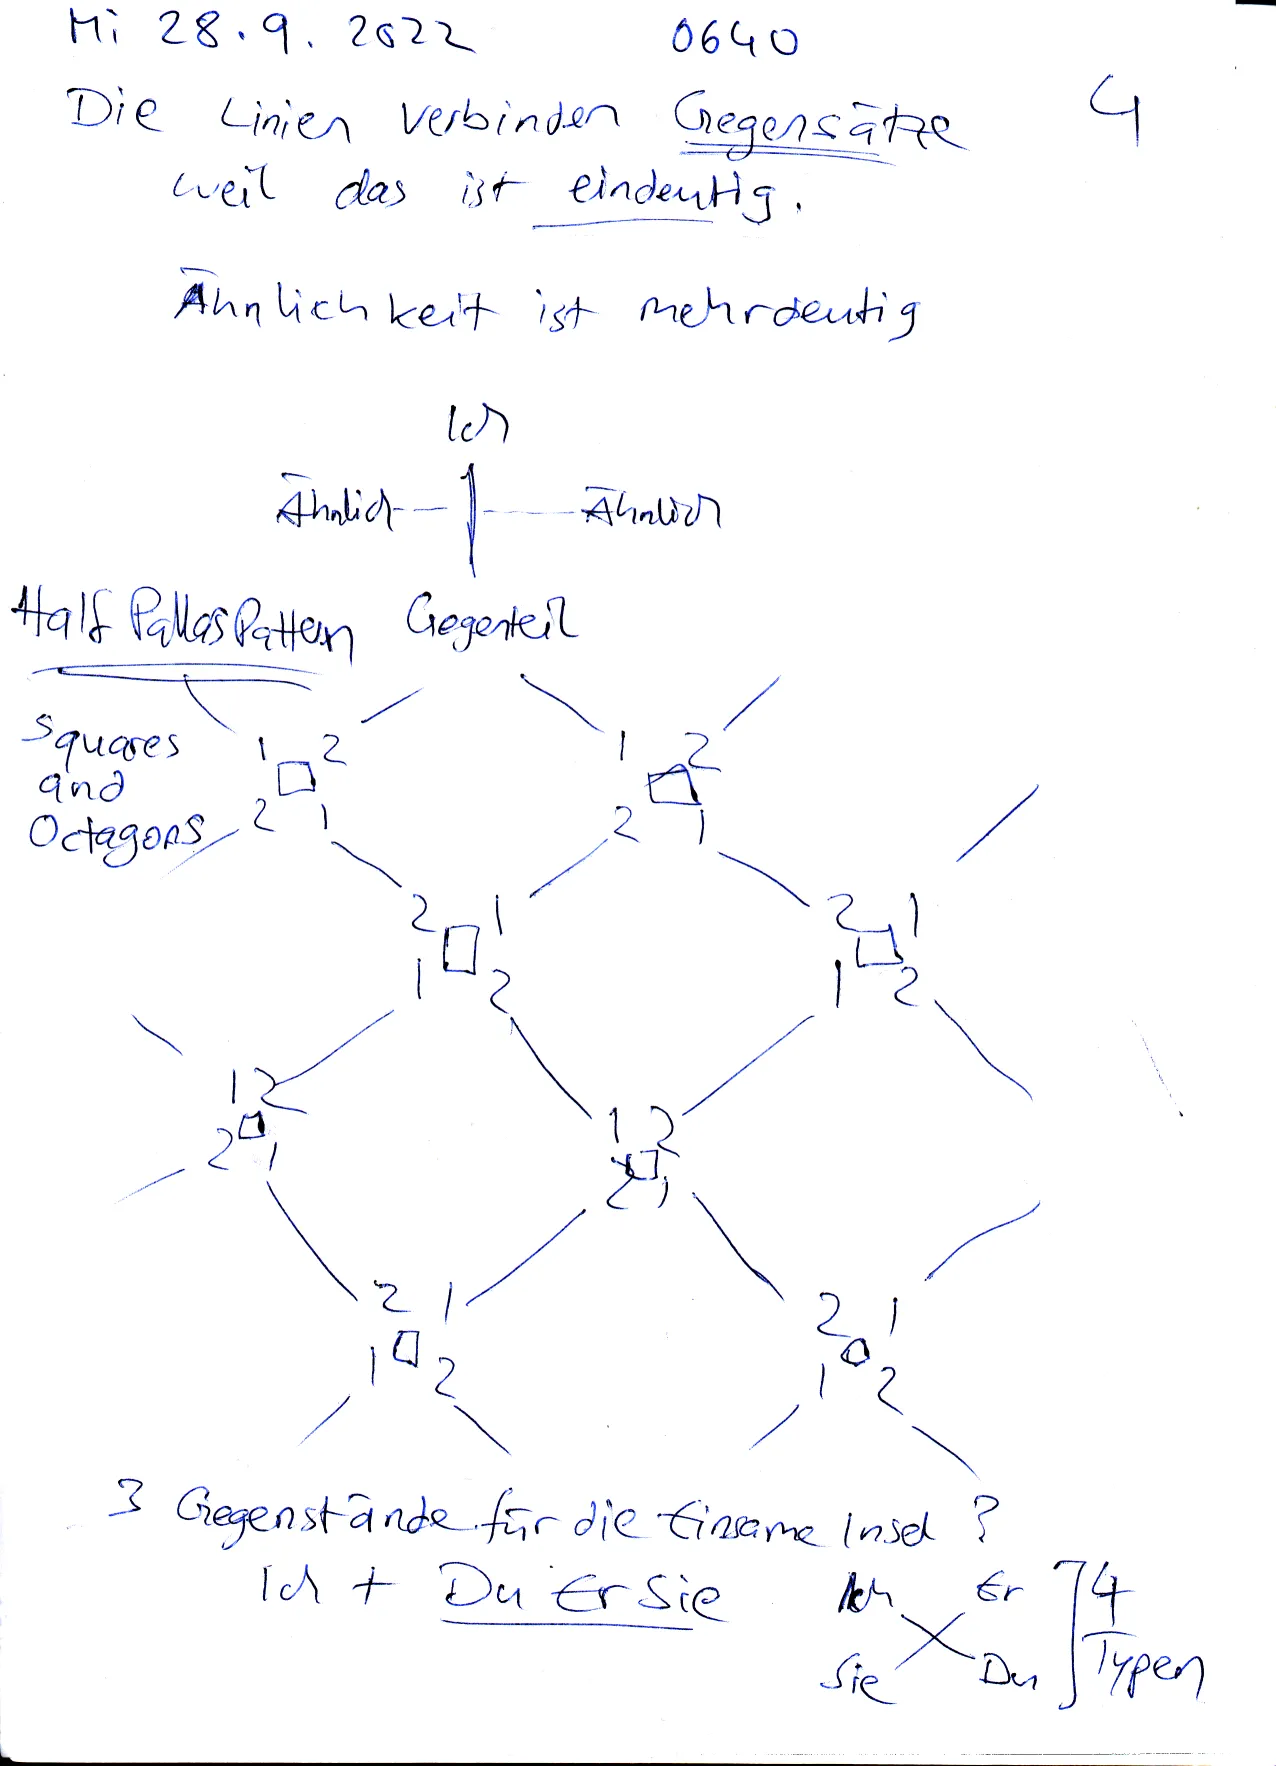 Mi 28.9.2022 0640
4
Die Linien verbinden Gegensätze
weil das ist eindeutig.
Ähnlichkeit ist mehrdeutig
Ich
Ähnlich Ähnlich
Half Pallas Pattern Gegenteil
Squares
and
Octagons
1 2 1 2
2 1 2 1
2 1 2 1
1 2 1 2
1 2 1 2
2 1 2 1
2 1 2 1
1 2 1 2
3 Gegenstände für die Einsame Insel?
Ich + Du Er Sie
Ich Er
Sie Du
4
Typen